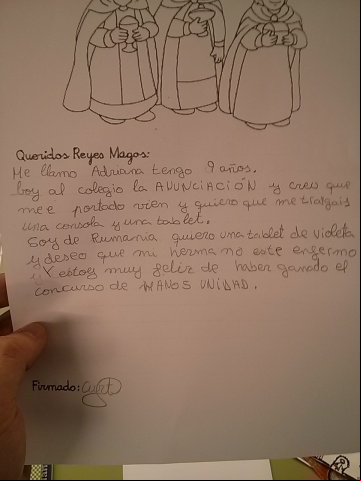 Queridos Reyes Magos:
Me llamo Adriana tengo 9 años.
boy al colegio la ANUNCIACIÓN y creo que
mee portado vien y quiero que me traigais
una consola y una tablet.
Soy de Rumania quiero una tablet de violeta
y deseo que mi herma no este enfermo
Y estoy muy feliz de haber ganado el
concurso de MANOS UNIDAD.
Firmado: